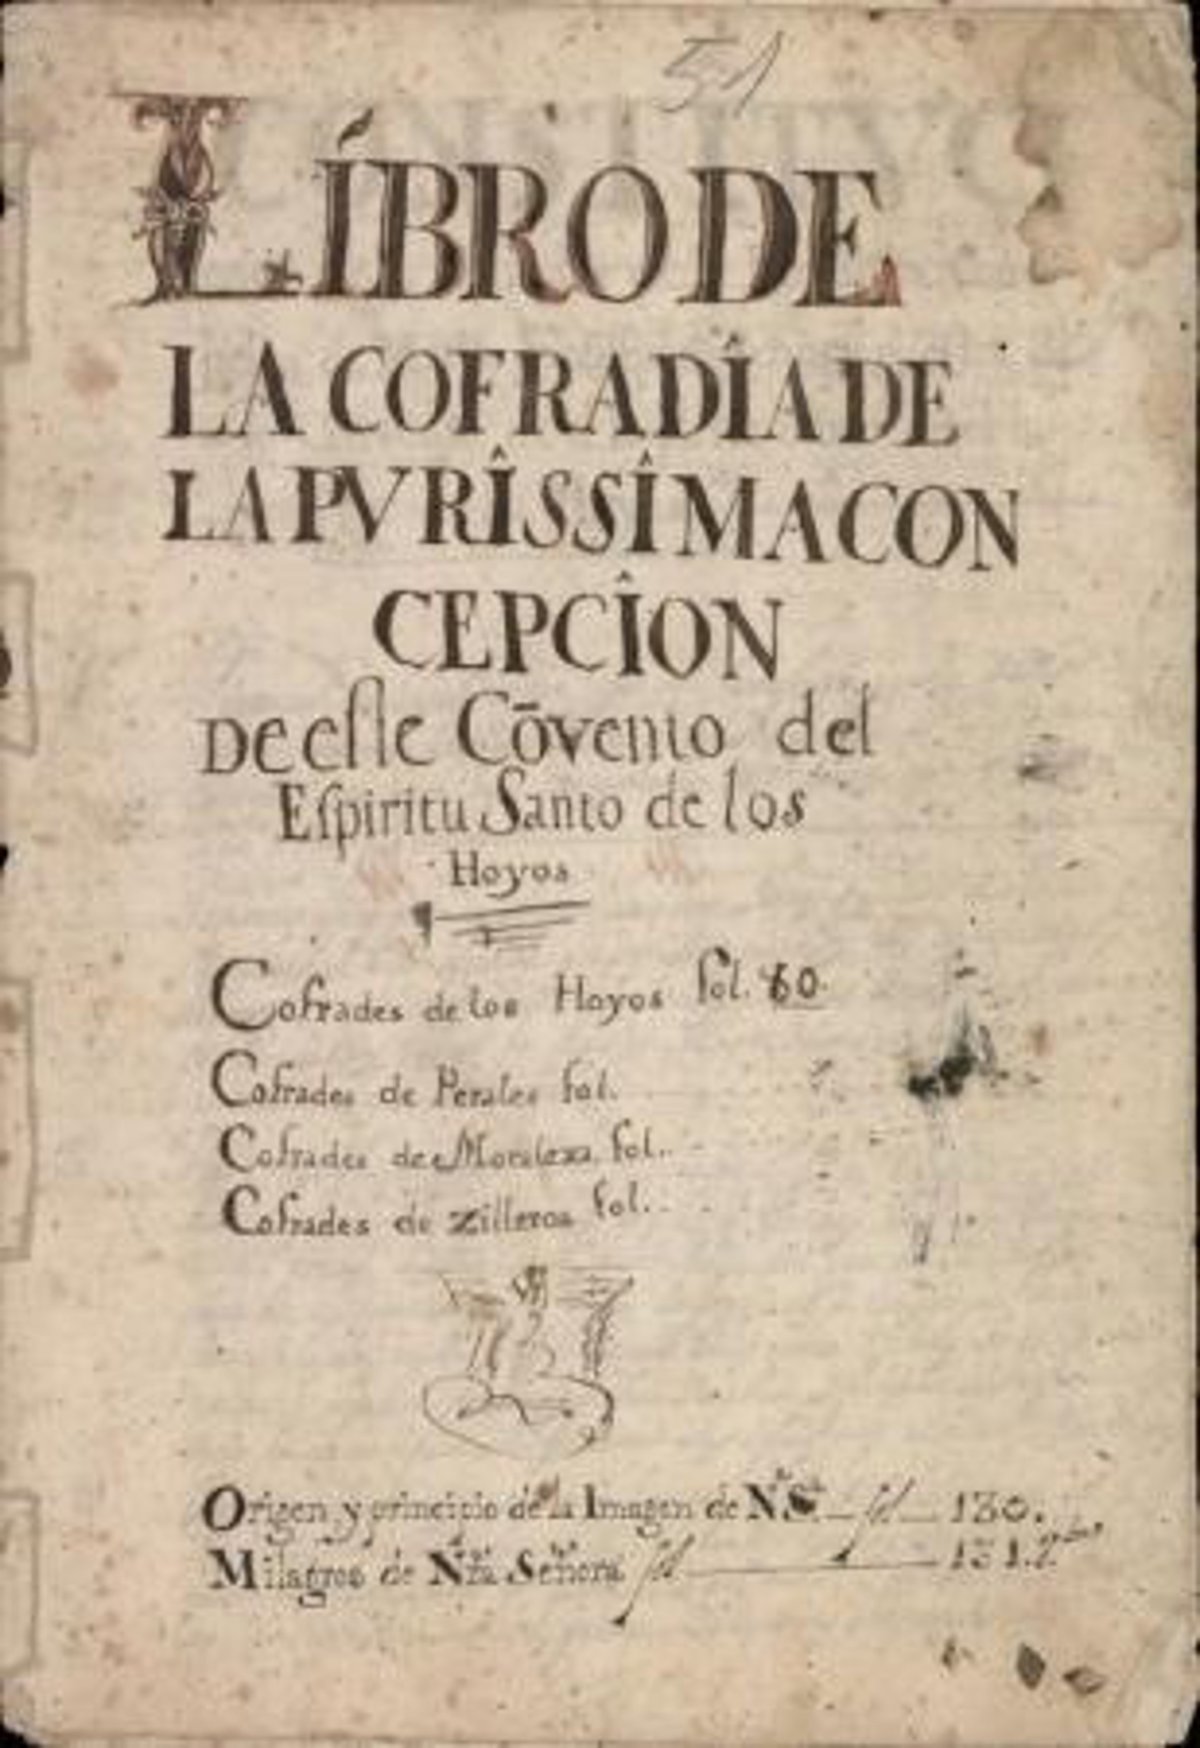 51
LÍBRO DE
LA COFRADÎA DE
LA PVRÎSSÎMA CON
CEPCÎON
DE este Cōvento del
Espiritu Santo de los
Hoyos
Cofrades de los Hoyos fol. 60.
Cofrades de Perales fol.
Cofrades de Moralexa fol..
Cofrades de Zilleros fol...
Origen y principio de la Imagen de Nª Sª fol 130.
Milagros de Nrã Señora fol 131.